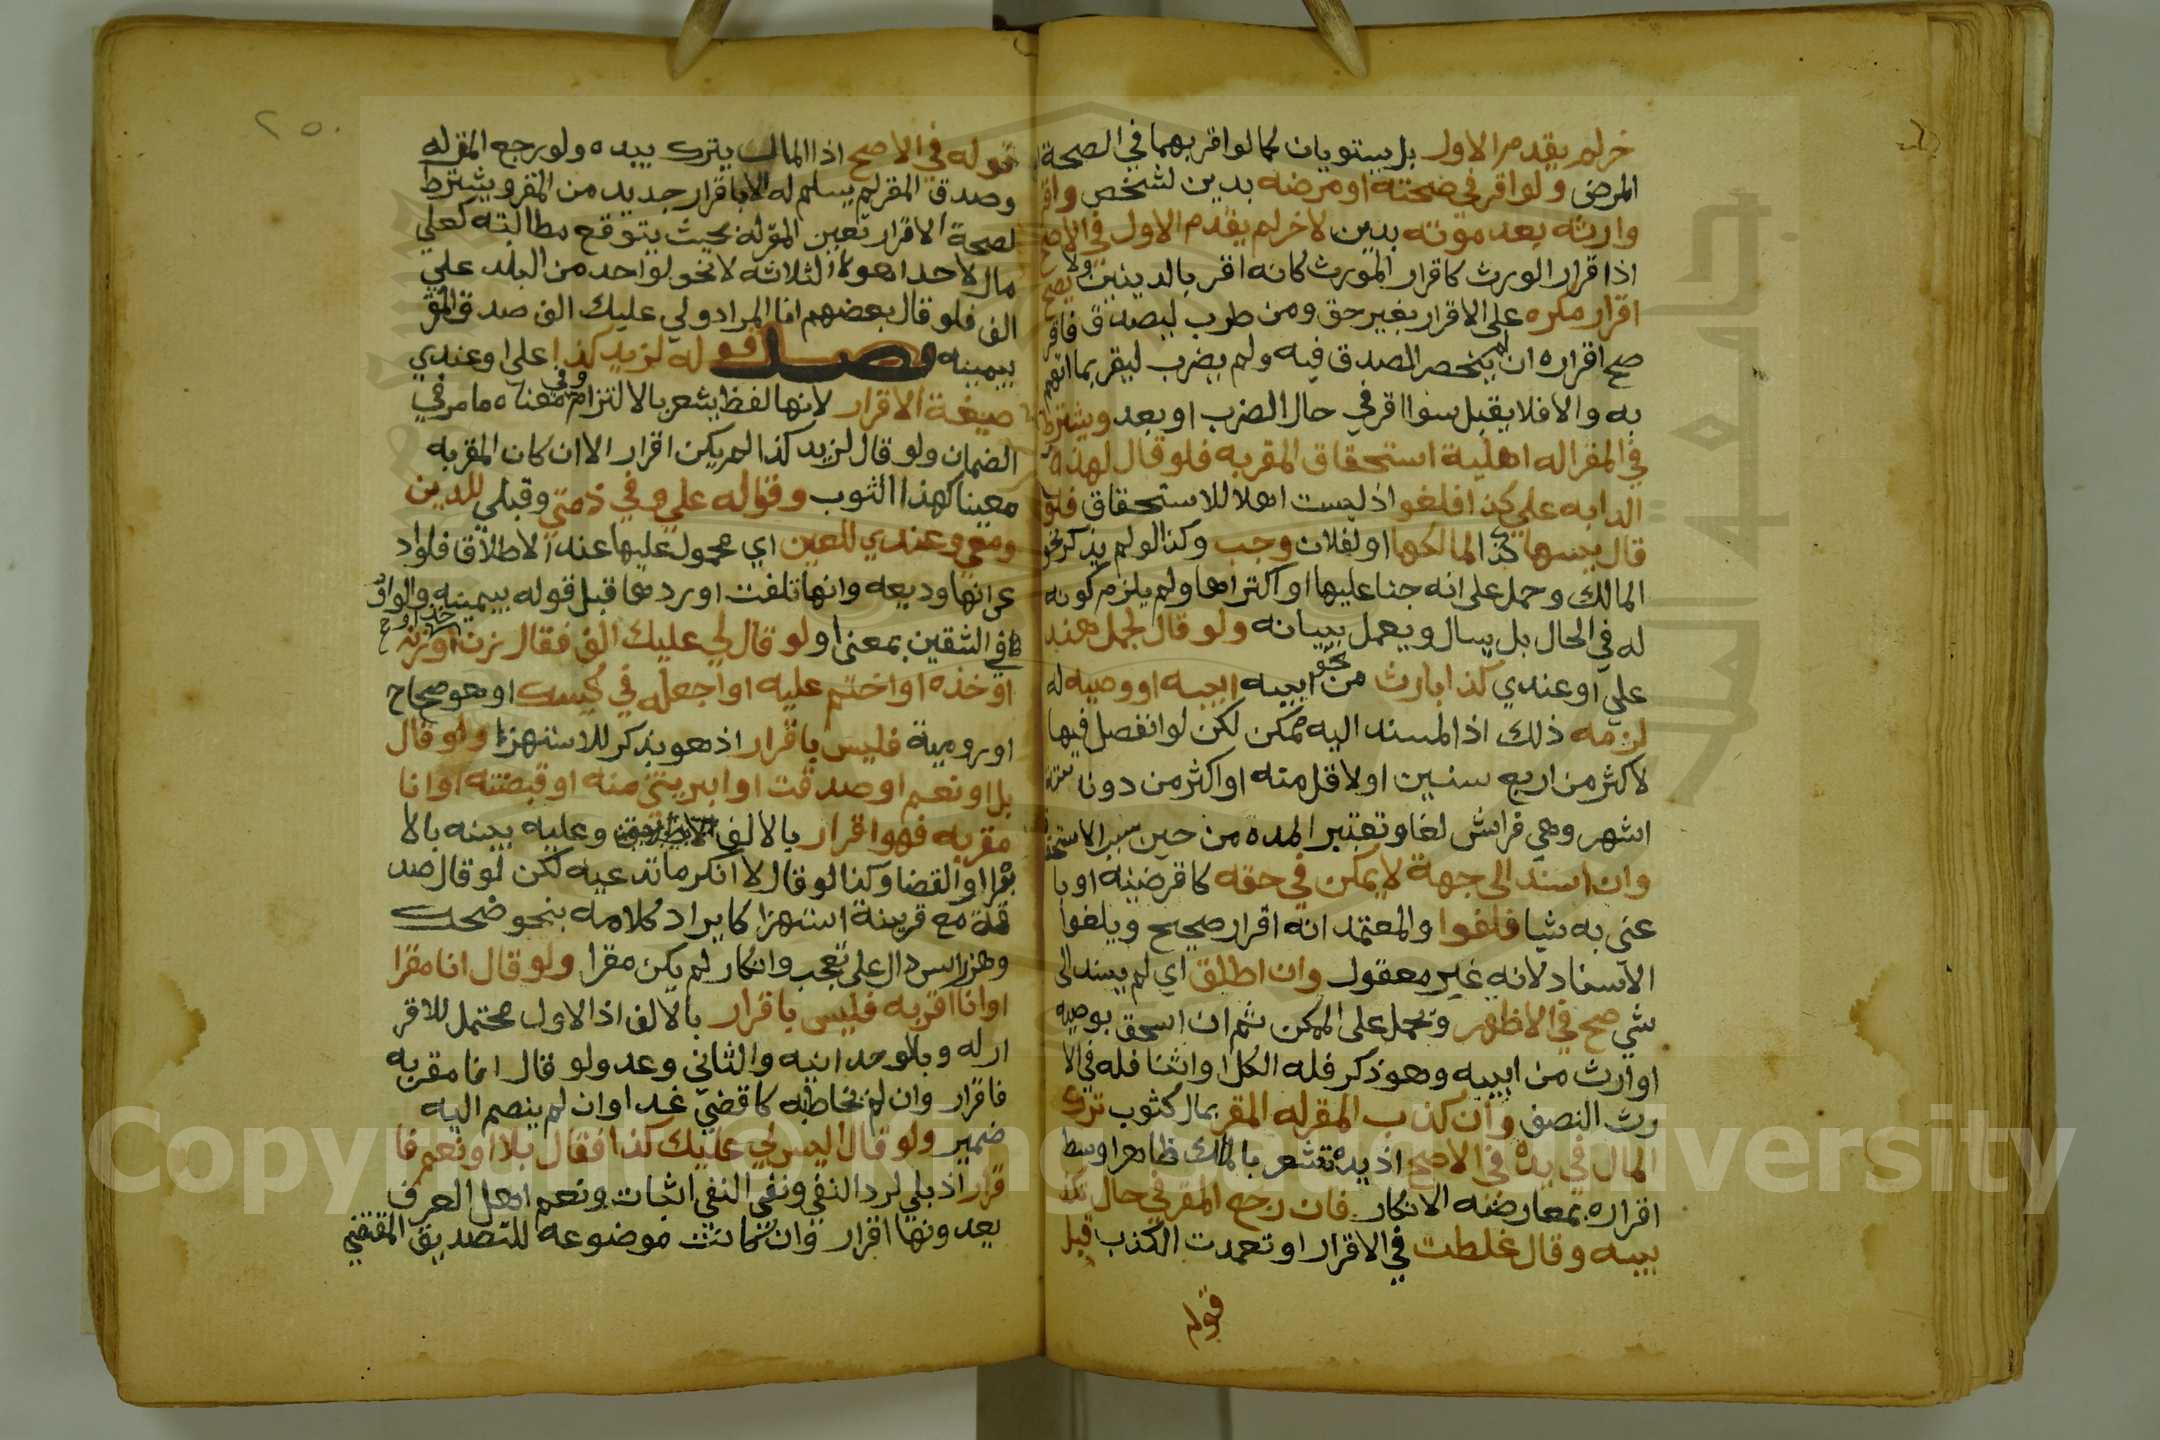 خر لم يقدم الاول بل يستويان كما لو اقر بهما في الصحة او
المرض ولو اقر في صحته او مرضه بدين لشخص واقر
وارثه بعد موته بدين لاخر لم يقدم الاول في الاصح
اذ اقرار الورث كاقرار المورث كانه اقر بالدينين ولا يصح
اقرار مكره على الاقرار بغير حق ومن ضرب ليصدق فاقر
صح اقراره ان لم ينحصر الصدق فيه ولم يضرب ليقر بما اتهم
به والا فلا يقبل سوا اقر في حال الضرب او بعد ويشترط
في المقر اله اهلية استحقاق المقر به فلو قال لهذه
الدابه علي كذا فلغو اذ ليست اهلا للاستحقاق فلو
قال بسببها كذا لمالكها او لفلان وجب وكذا لو لم يذكر نحو
المالك وحمل على انه جنا عليها او اكتراها ولم يلزم كونه
له في الحال بل يسال ويعمل ببيانه ولو قال لحمل هند
علي او عندي كذا بارث من نحو ابيه او وصيه له
لزمه ذلك اذ المسند اليه ممكن لكن لو انفصل فيها
لاكثر من اربع سنين او لاقل منه او اكثر من دونا ستة
اشهر وهي فراش لغا وتعتبر المده من حين سبب الاستحقاق
وان اسند الى جهة لا يمكن في حقه كاقرضنيه او با
عني به شيا فلغوا والمعتمد انه اقرار صحيح ويلغوا
الاسناد لانه غير معقول وان اطلق اي لم يسند الى
شي صح في الاظهر وتحمل على الممكن ثم ان استحق بوصيه
او ارث من ابيه وهو ذكر فله الكل او انثا فله في الا
رث النصف وان كذب المقر له المقر بمال كثوب ترك
المال في يده في الاصح اذ يده تشعر بالملك ظاهرا وسقط
اقراره بمعارضته الانكار فان رجع المقر في حال تكذ
يبه وقال غلطت في الاقرار او تعمدت الكذب قبل
قوله
٢٥٠
قوله في الاصح اذ المال يترك بيده ولو رجع المقر له
وصدق المقر لم يسلم له الا باقرار جديد من المقر ويشترط
لصحة الاقرار تعين المقر له بحيث يتوقع مطالبته كعلي
مال لاحد هولا الثلاثه لا نحو لواحد من البلد علي
الف فلو قال بعضهم انا المراد ولي عليك الف صدق المقر
بيمينه فصل قوله لزيد كذا علي او عندي
صيغة الاقرار لانها لفظ يشعر بالالتزام وفي معناه ما مر في
الضمان ولو قال لزيد كذا لم يكن اقرار الا ان كان المقر به
معينا كهذا الثوب وقوله علي وفي ذمتي وقبلي للدين
ومعي وعندي للعين اي محمول عليها عند الاطلاق فلو اد
عى انها وديعه وانها تلفت او ردها قبل قوله بيمينه والواو
في الشقين بمعنى او ولو قال لي عليك الف فقال زن او زنه
او خذه او اختم عليه او اجعله في كيسك او هو صحاح
او رومية فليس باقرار اذ هو يذكر للاستهزا ولو قال
بلا او نعم او صدقت او ابريتني منه او قبضته او انا
مقر به فهو اقرار بالالف وعليه بينه بالا
برا او القضا وكذا لو قال لا انكر ما تدعيه لكن لو قال صد
قة مع قرينة استهزا كايراد كلامه بنحو ضحك
وهز راس دال على تعجب وانكار لم يكن مقرا ولو قال انا مقرا
او انا اقر به فليس باقرار بالالف اذ الاول محتمل للاقر
ار له وبالوحدانيه والثاني وعد ولو قال انا مقر به
فاقرار وان لم يخاطبه كاقضي غدا وان لم ينضم اليه
ضمير ولو قال اليس لي عليك كذا فقال بلا او نعم فا
قرار اذ بلي لرد النفي ونفي النفي اثبات ونعم اهل العرف
يعدونها اقرار وان كانت موضوعه للتصديق المقتضي
Copyright © King Saud University
جامعة الملك سعود